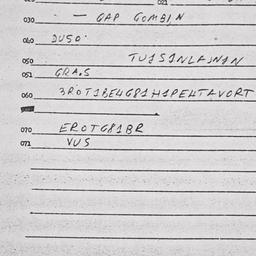 021
030 - — GAP GOMBIN
040 DUSO.
050 TUJSJNLAJNJN
051 GRA.S
060 3ROTJBE4G81HJPE4TAVORT
070 EROTG81BR
071 VUS